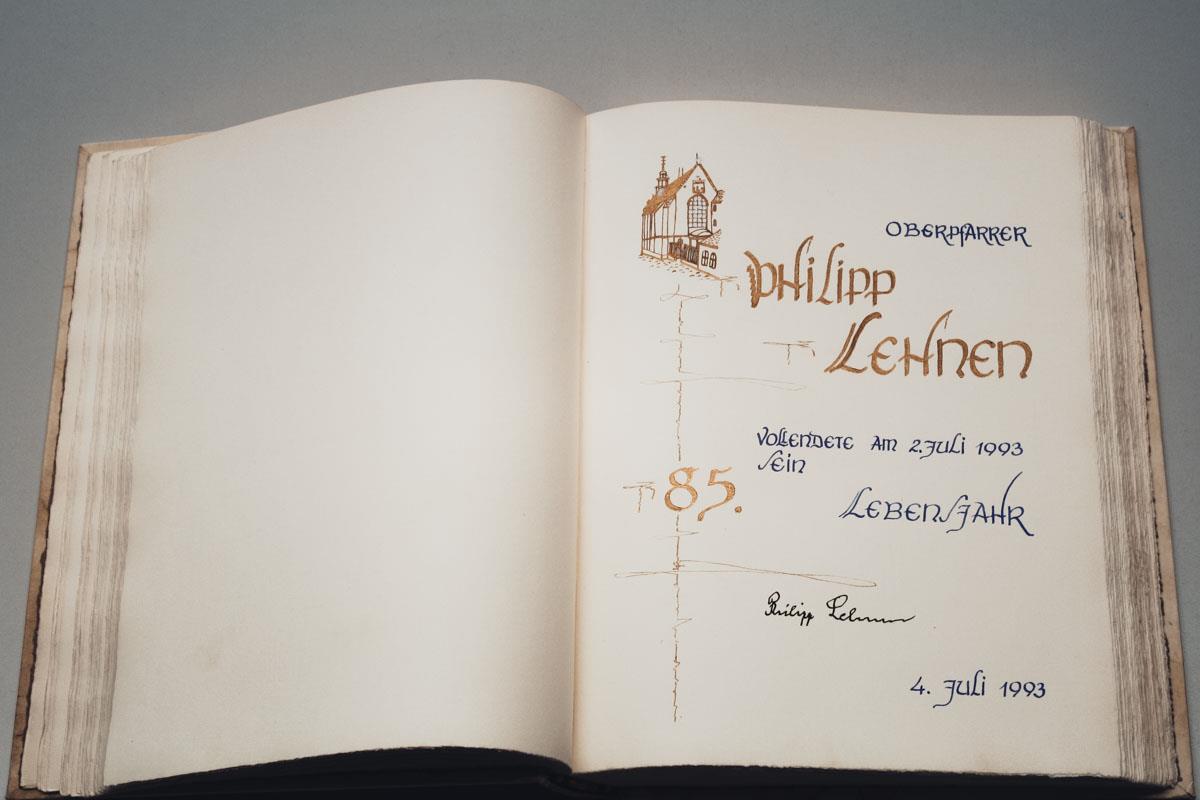 OBERPFARRER
PHILIPP
LEHNEN
VOLLENDETE AM 2. JULI 1993
SEIN
85.
LEBENSJAHR
Philipp Lehnen
4. JULI 1993